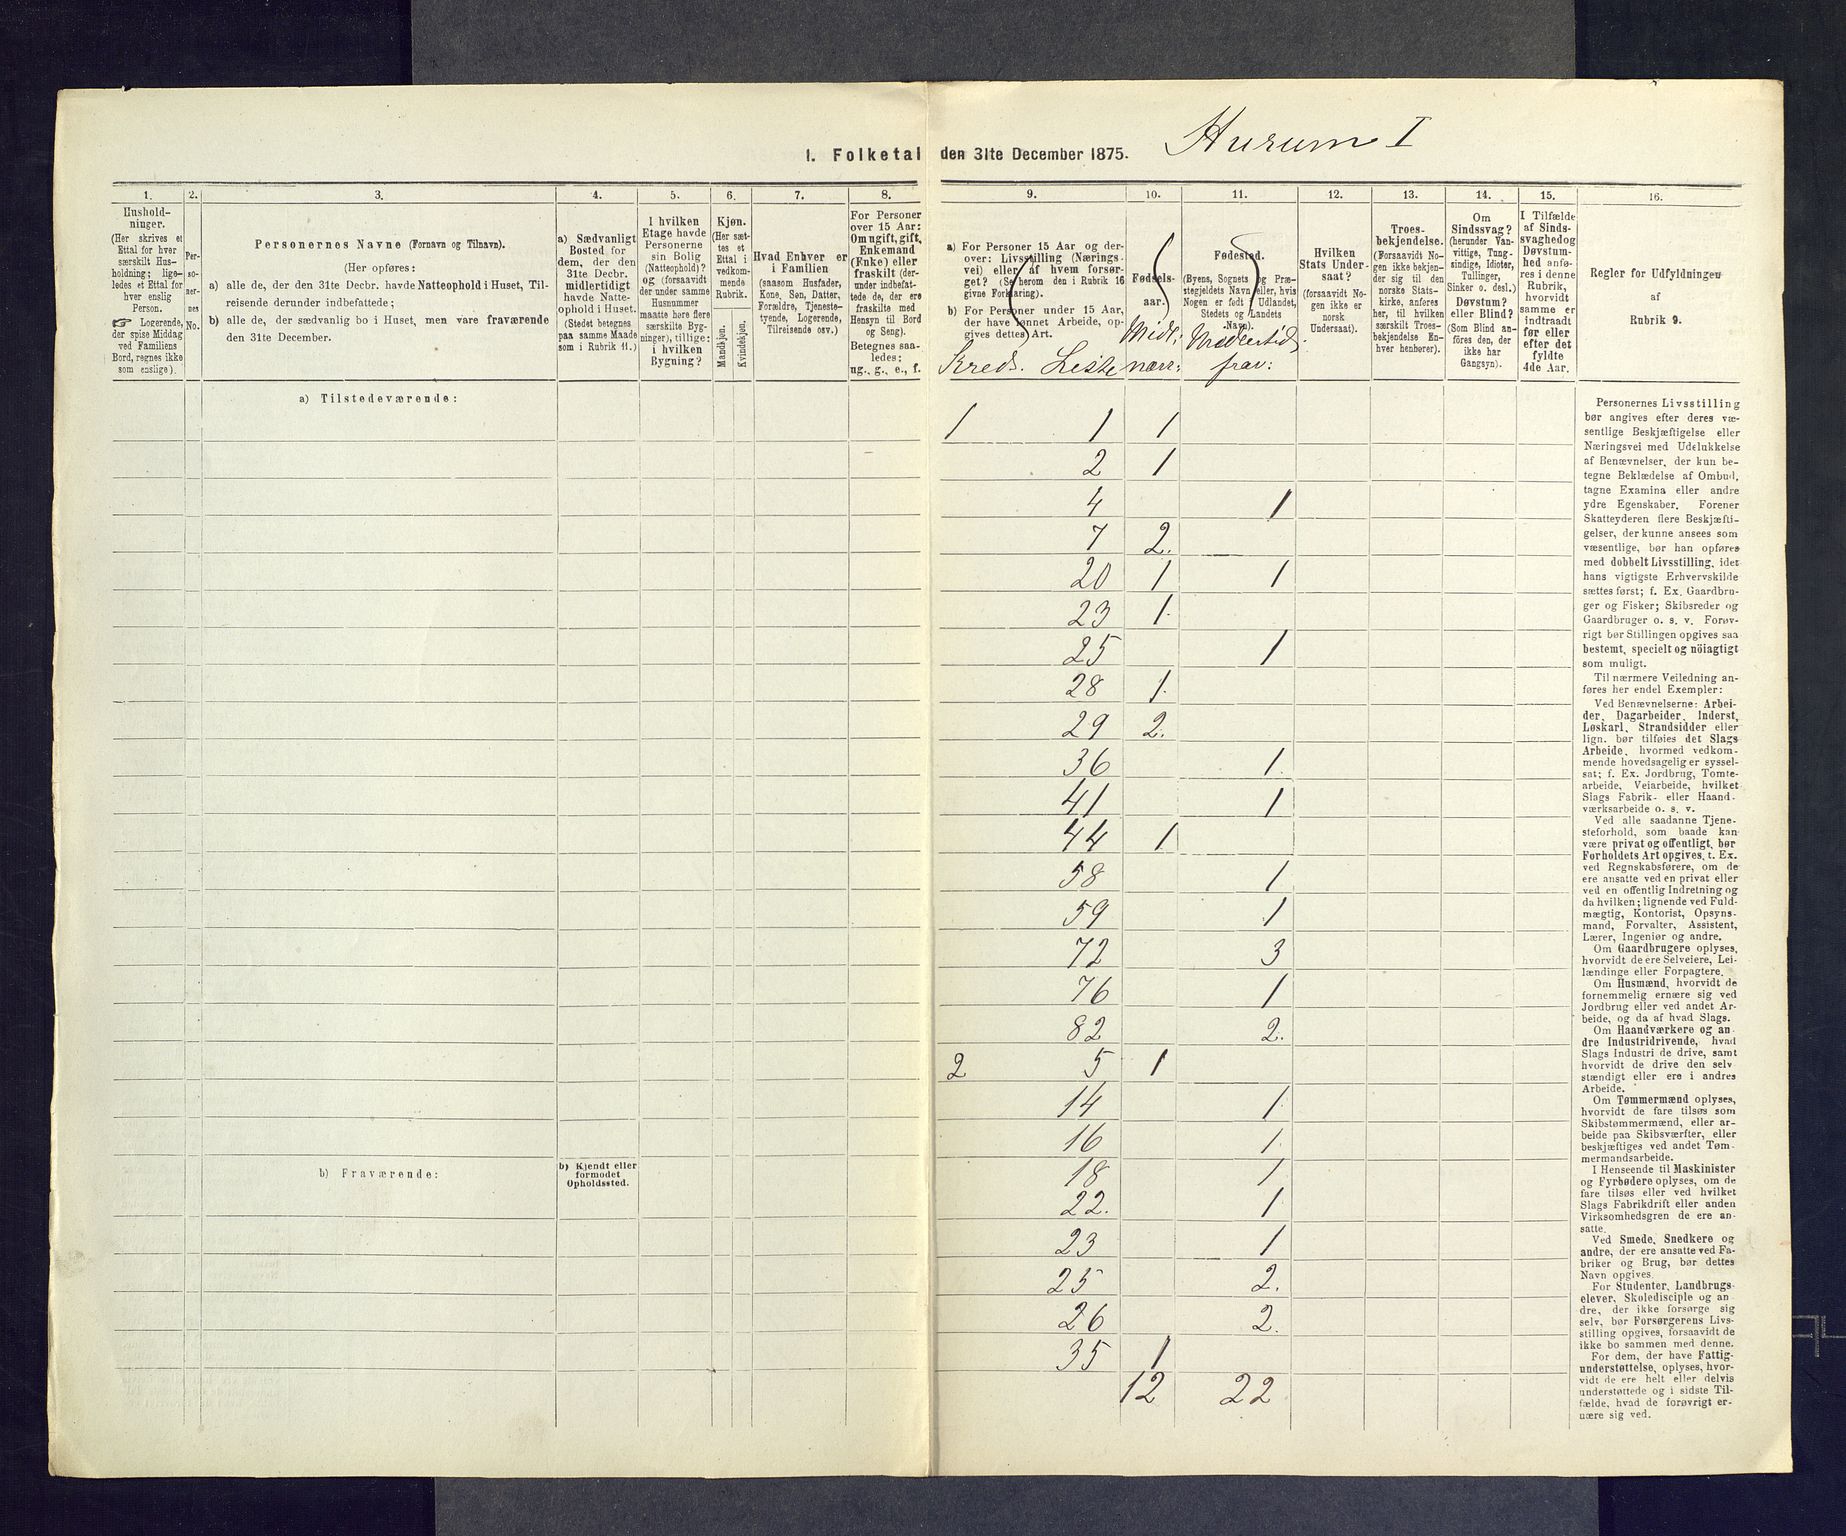 Hurum I
1. Folketal den 31te December 1875.
1.
Husholdninger.
(Her skrives et
Ettal for hver
særskilt Husholdning; ligeledes
et Ettal for
hver enslig
Person.
☞ Logerende,
der spise Middag
ved Familiens
Bord, regnes ikke
som enslige).
2.
Personernes
No.
3.
Personernes Navne (Fornavn og Tilnavn).
(Her opføres:
a) alle de, der den 31te Decbr. havde Natteophold i Huset, Tilreisende derunder indbefattede;
b) alle de, der sædvanlig bo i Huset, men vare fraværende
den 31te December.
4.
a) Sædvanligt
Bosted for
dem, der den
31te Decbr.
midlertidigt
havde Natteophold i Huset.
(Stedet betegnes
paa samme Maade
som i Rubrik 11.)
5.
I hvilken
Etage havde
Personerne
sin Bolig
(Natteophold)?
og (forsaavidt
der under samme
Husnummer
maatte høre flere
særskilte Bygninger), tillige:
i hvilken
Bygning?
6.
Kjøn.
(Her sættes et
Ettal i
vedkommende
Rubrik.
Mandkjøn.
Kvindekjøn.
7.
Hvad Enhver er
i Familien
(saasom Husfader,
Kone, Søn, Datter,
Forældre, Tjenestetyende, Logerende,
Tilreisende osv.)
8.
For Personer
over 15 Aar:
Om ugift, gift,
Enkemand
(Enke) eller
fraskilt (derunder indbefattede de, der ere
fraskilte med
Hensyn til Bord
og Seng).
Betegnes saaledes:
ug., g., e., f.
9.
a) For Personer 15 Aar og derover: Livsstilling (Næringsvei) eller af hvem forsørget? (Se herom den i Rubrik 16
givne Forklaring).
b) For Personer under 15 Aar,
der have lønnet Arbeide, opgives dettes Art.
Kreds. Liste
10.
Fødselsaar.
Midl:
nærv:
11.
Fødested.
(Byens, Sognets og Præstegjeldets Navn eller, hvis
Nogen er født i Udlandet,
Stedets og Landets
Navn).
Midlertid:
frav:
12.
Hvilken
Stats Undersaat?
(forsaavidt Nogen ikke er
norsk
Undersaat).
13.
Troesbekjendelse.
(Forsaavidt Nogen ikke bekjender sig til den
norske Statskirke, anføres
her, til hvilken
særskilt Troesbekjendelse Enhver henhører).
14.
Om
Sindssvag?
(herunder Vanvittige, Tungsindige, Idioter,
Tullinger,
Sinker o. desl.)
Døvstum?
eller Blind?
(Som Blind anføres den, der
ikke har
Gangsyn).
15.
I Tilfælde
af Sindssvaghed og
Døvstumhed anføres i denne
Rubrik,
hvorvidt
samme er
indtraadt
før eller
efter det
fyldte
4de Aar.
16.
Regler for Udfyldningen
af
Rubrik 9.
a) Tilstedeværende:
1 1 1
2 1
4 1
7 2.
20 1 1
23 1.
25 1
28 1.
29 2.
36 1.
41 1
44 1.
58 1
59 1
72 3
76 1
82 2.
2 5 1
14 1.
16 1.
18 1
22. 1.
23 1
25 2.
26 2.
35 1
12 22
b) Fraværende:
b) Kjendt eller
formodet
Opholdssted.
Personernes Livsstilling
bør angives efter deres væsentlige Beskjæftigelse eller
Næringsvei med Udelukkelse
af Benævnelser, der kun betegne Beklædelse af Ombud,
tagne Examina eller andre
ydre Egenskaber. Forener
Skatteyderen flere Beskjæftigelser, der kunne ansees som
væsentlige, bør han opføres
med dobbelt Livsstilling, idet
hans vigtigste Erhvervskilde
sættes først; f. Ex. Gaardbruger og Fisker; Skibsreder og
Gaardbruger o. s. v. Forøvrigt bør Stillingen opgives saa
bestemt, specielt og nöiagtigt
som muligt.
Til nærmere Veiledning anføres her endel Exempler:
Ved Benævnelserne: Arbeider, Dagarbeider, Inderst,
Løskarl, Strandsidder eller
lign. bør tilføies det Slags
Arbeide, hvormed vedkommende hovedsagelig er sysselsat; f. Ex. Jordbrug, Tomtearbeide, Veiarbeide, hvilket
Slags Fabrik- eller Haandværksarbeide o. s. v.
Ved alle saadanne Tjenesteforhold, som baade kan
være privat og offentligt, bør
Forholdets Art opgives, t. Ex.
ved Regnskabsførere, om de
ere ansatte ved en privat eller
ved en offentlig Indretning og
da hvilken; lignende ved Fuldmægtig, Kontorist, Opsynsmand, Forvalter, Assistent,
Lærer, Ingeniør og andre.
Om Gaardbrugere oplyses,
hvorvidt de ere Selveiere, Leilændinge eller Forpagtere.
Om Husmænd, hvorvidt de
fornemmelig ernære sig ved
Jordbrug eller ved andet Arbeide, og da af hvad Slags.
Om Haandværkere og andre Industridrivende, hvad
Slags Industri de drive, samt
hvorvidt de drive den selvstændigt eller ere i andres
Arbeide.
Om Tømmermænd oplyses,
hvorvidt de fare tilsøs som
Skibstømmermænd, eller arbeide paa Skibsværfter, eller
beskjæftiges ved andet Tømmermandsarbeide.
I Henseende til Maskinister
og Fyrbødere oplyses, om de
fare tilsøs eller ved hvilket
Slags Fabrikdrift eller anden
Virksomhedsgren de ere ansatte.
Ved Smede, Snedkere og
andre, der ere ansatte ved Fabriker og Brug, bør dettes
Navn opgives.
For Studenter, Landbrugselever, Skoledisciple og andre, der ikke forsørge sig
selv, bør Forsørgerens Livsstilling opgives, forsaavidt de
ikke bo sammen med denne.
For dem, der have Fattigunderstøttelse, oplyses, hvorvidt de ere helt eller delvis
understøttede og i sidste Tilfælde, hvad de forøvrigt ernære sig ved.